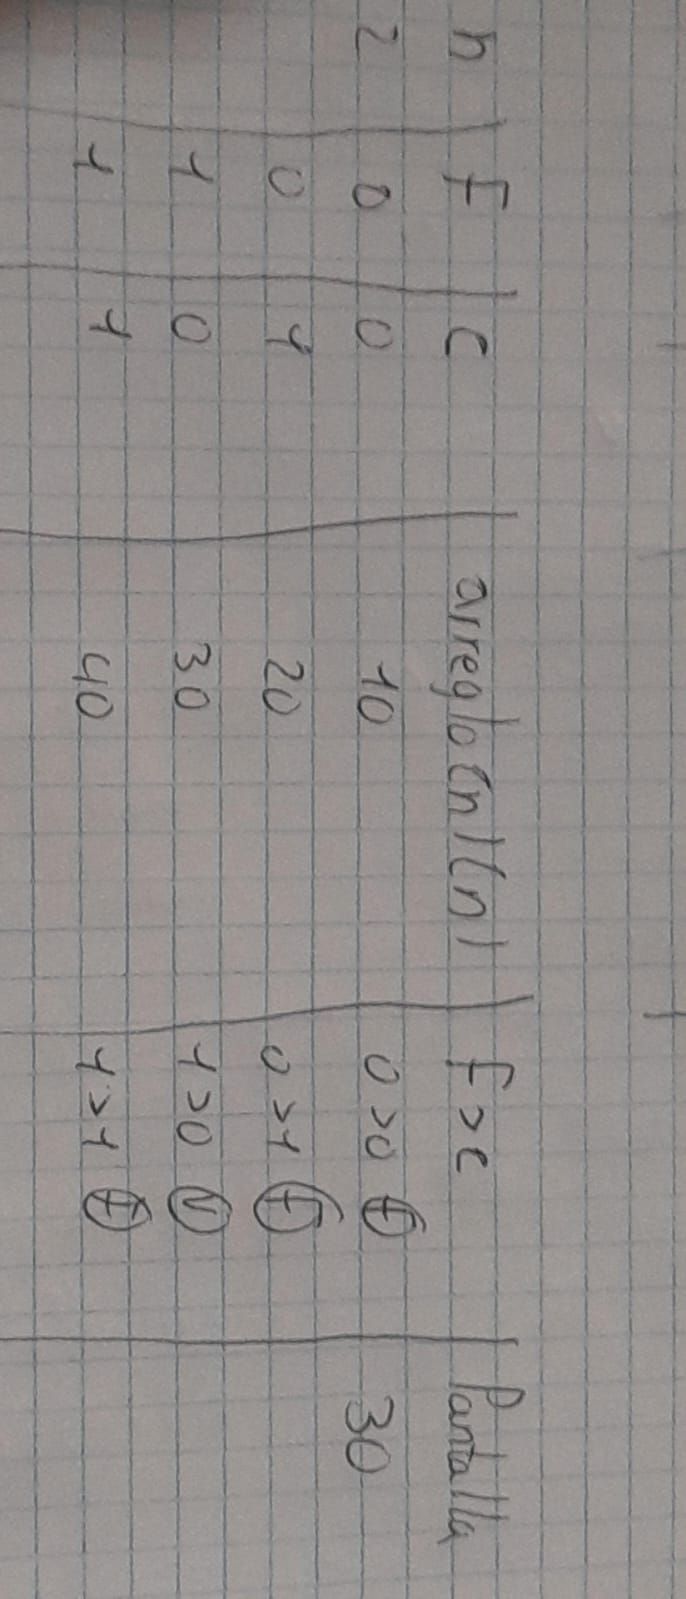 n F C arreglo(n)(n) F>c Pantalla
2 0 0 10 0>0 F 30
0 1 20 0>1 F
1 0 30 1>0 V
1 1 40 1>1 F